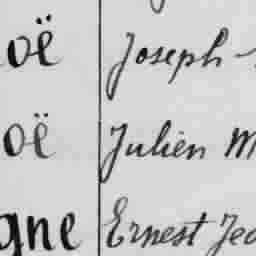 oë Joseph
oë Julien M
gne Ernest Jea